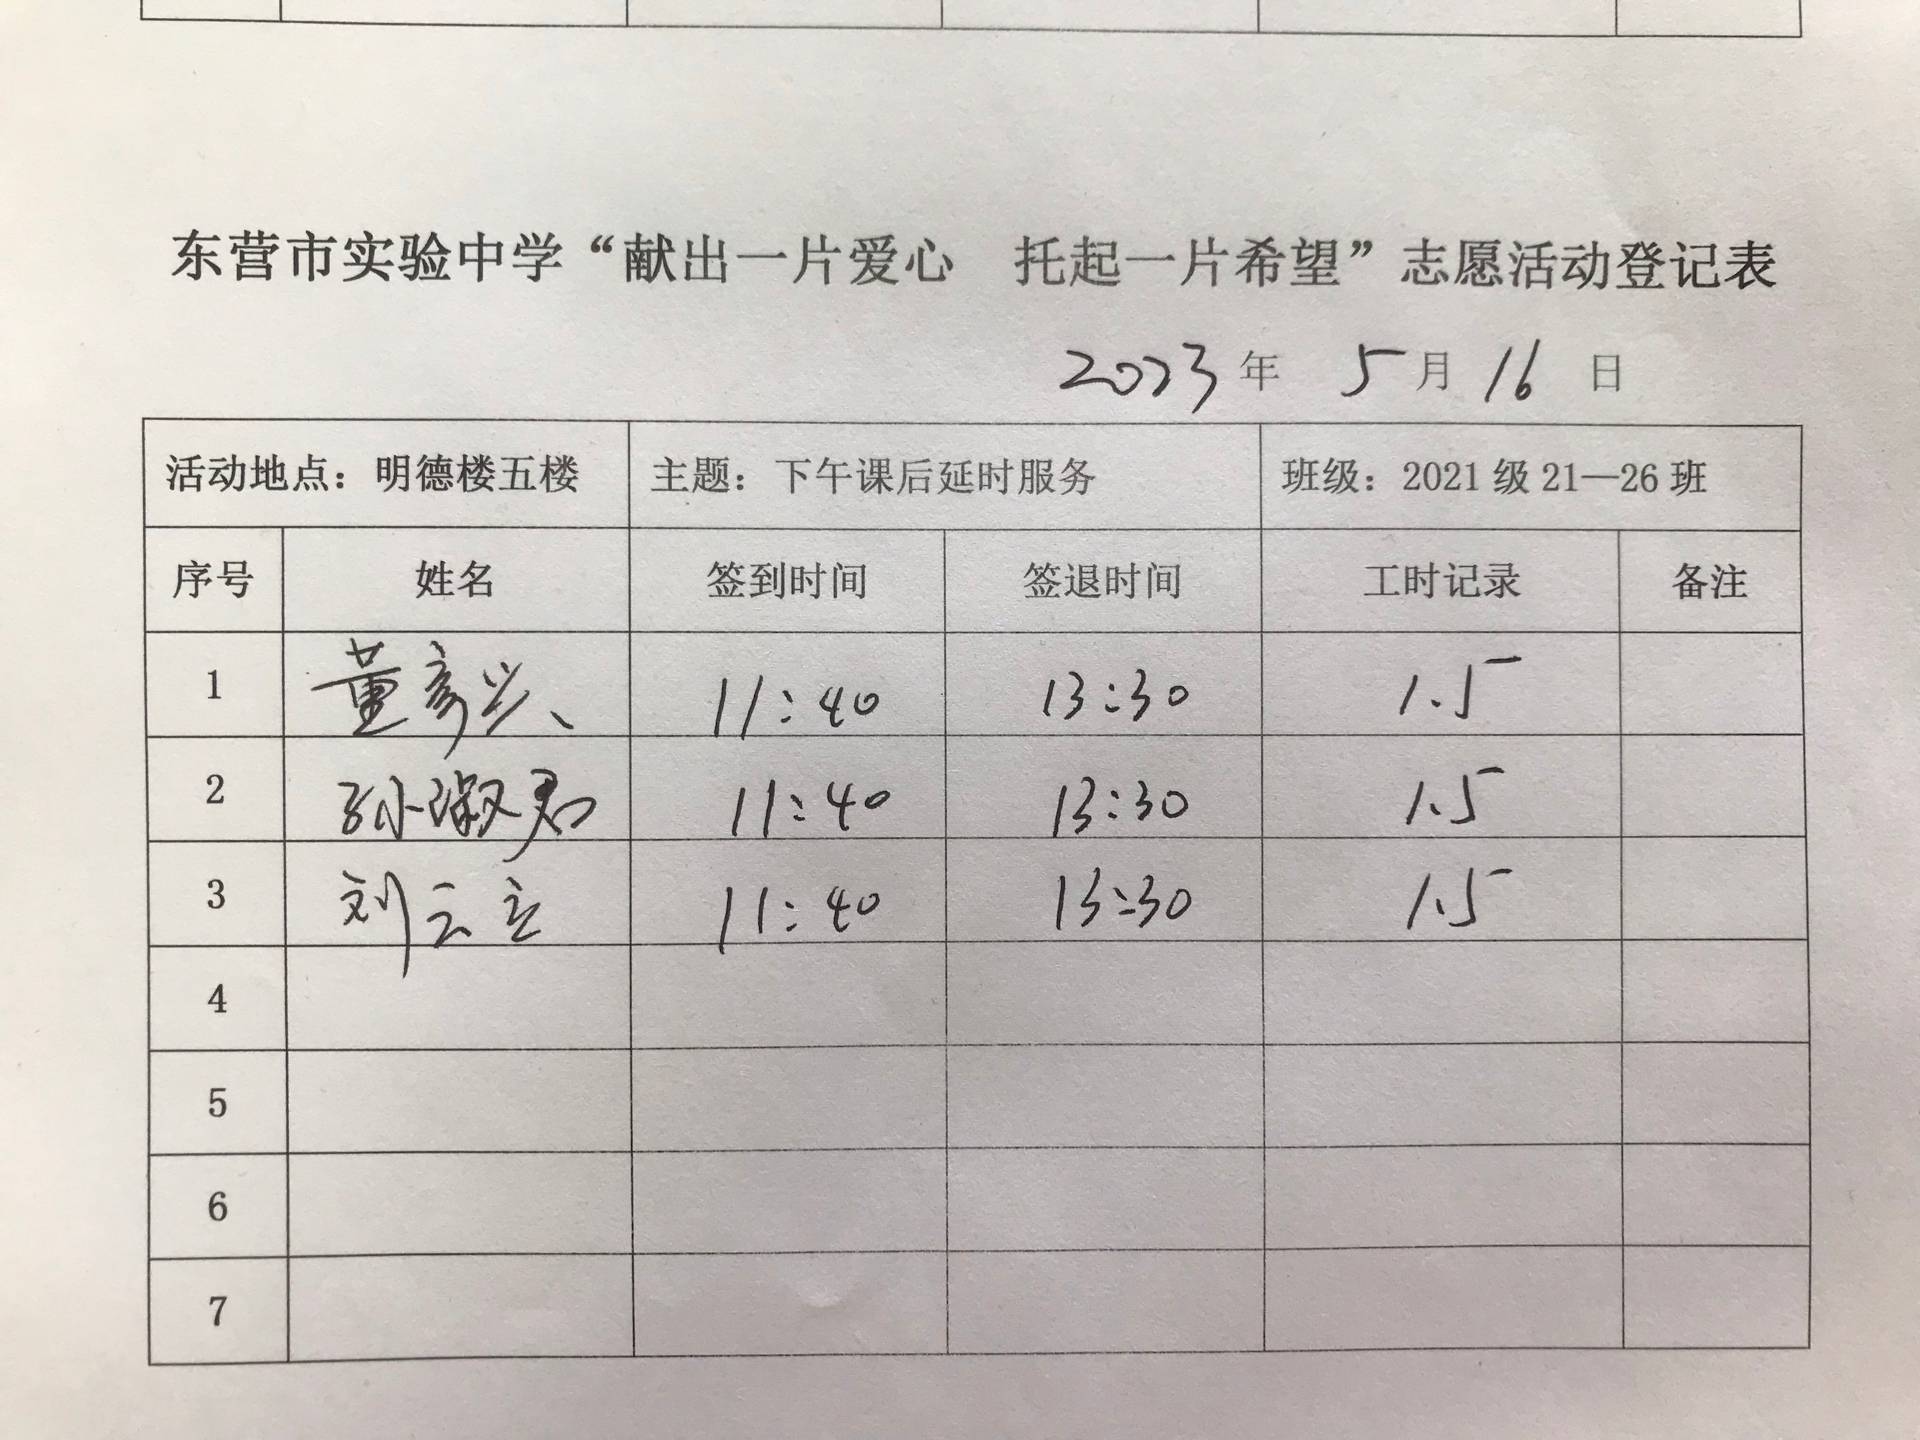 东营市实验中学“献出一片爱心 托起一片希望”志愿活动登记表
2023年 5月16日
活动地点：明德楼五楼 主题：下午课后延时服务 班级：2021级21—26班
序号 姓名 签到时间 签退时间 工时记录 备注
1 董彦兴 11:40 13:30 1.5
2 孙淑君 11:40 13:30 1.5
3 刘云立 11:40 13:30 1.5
4
5
6
7